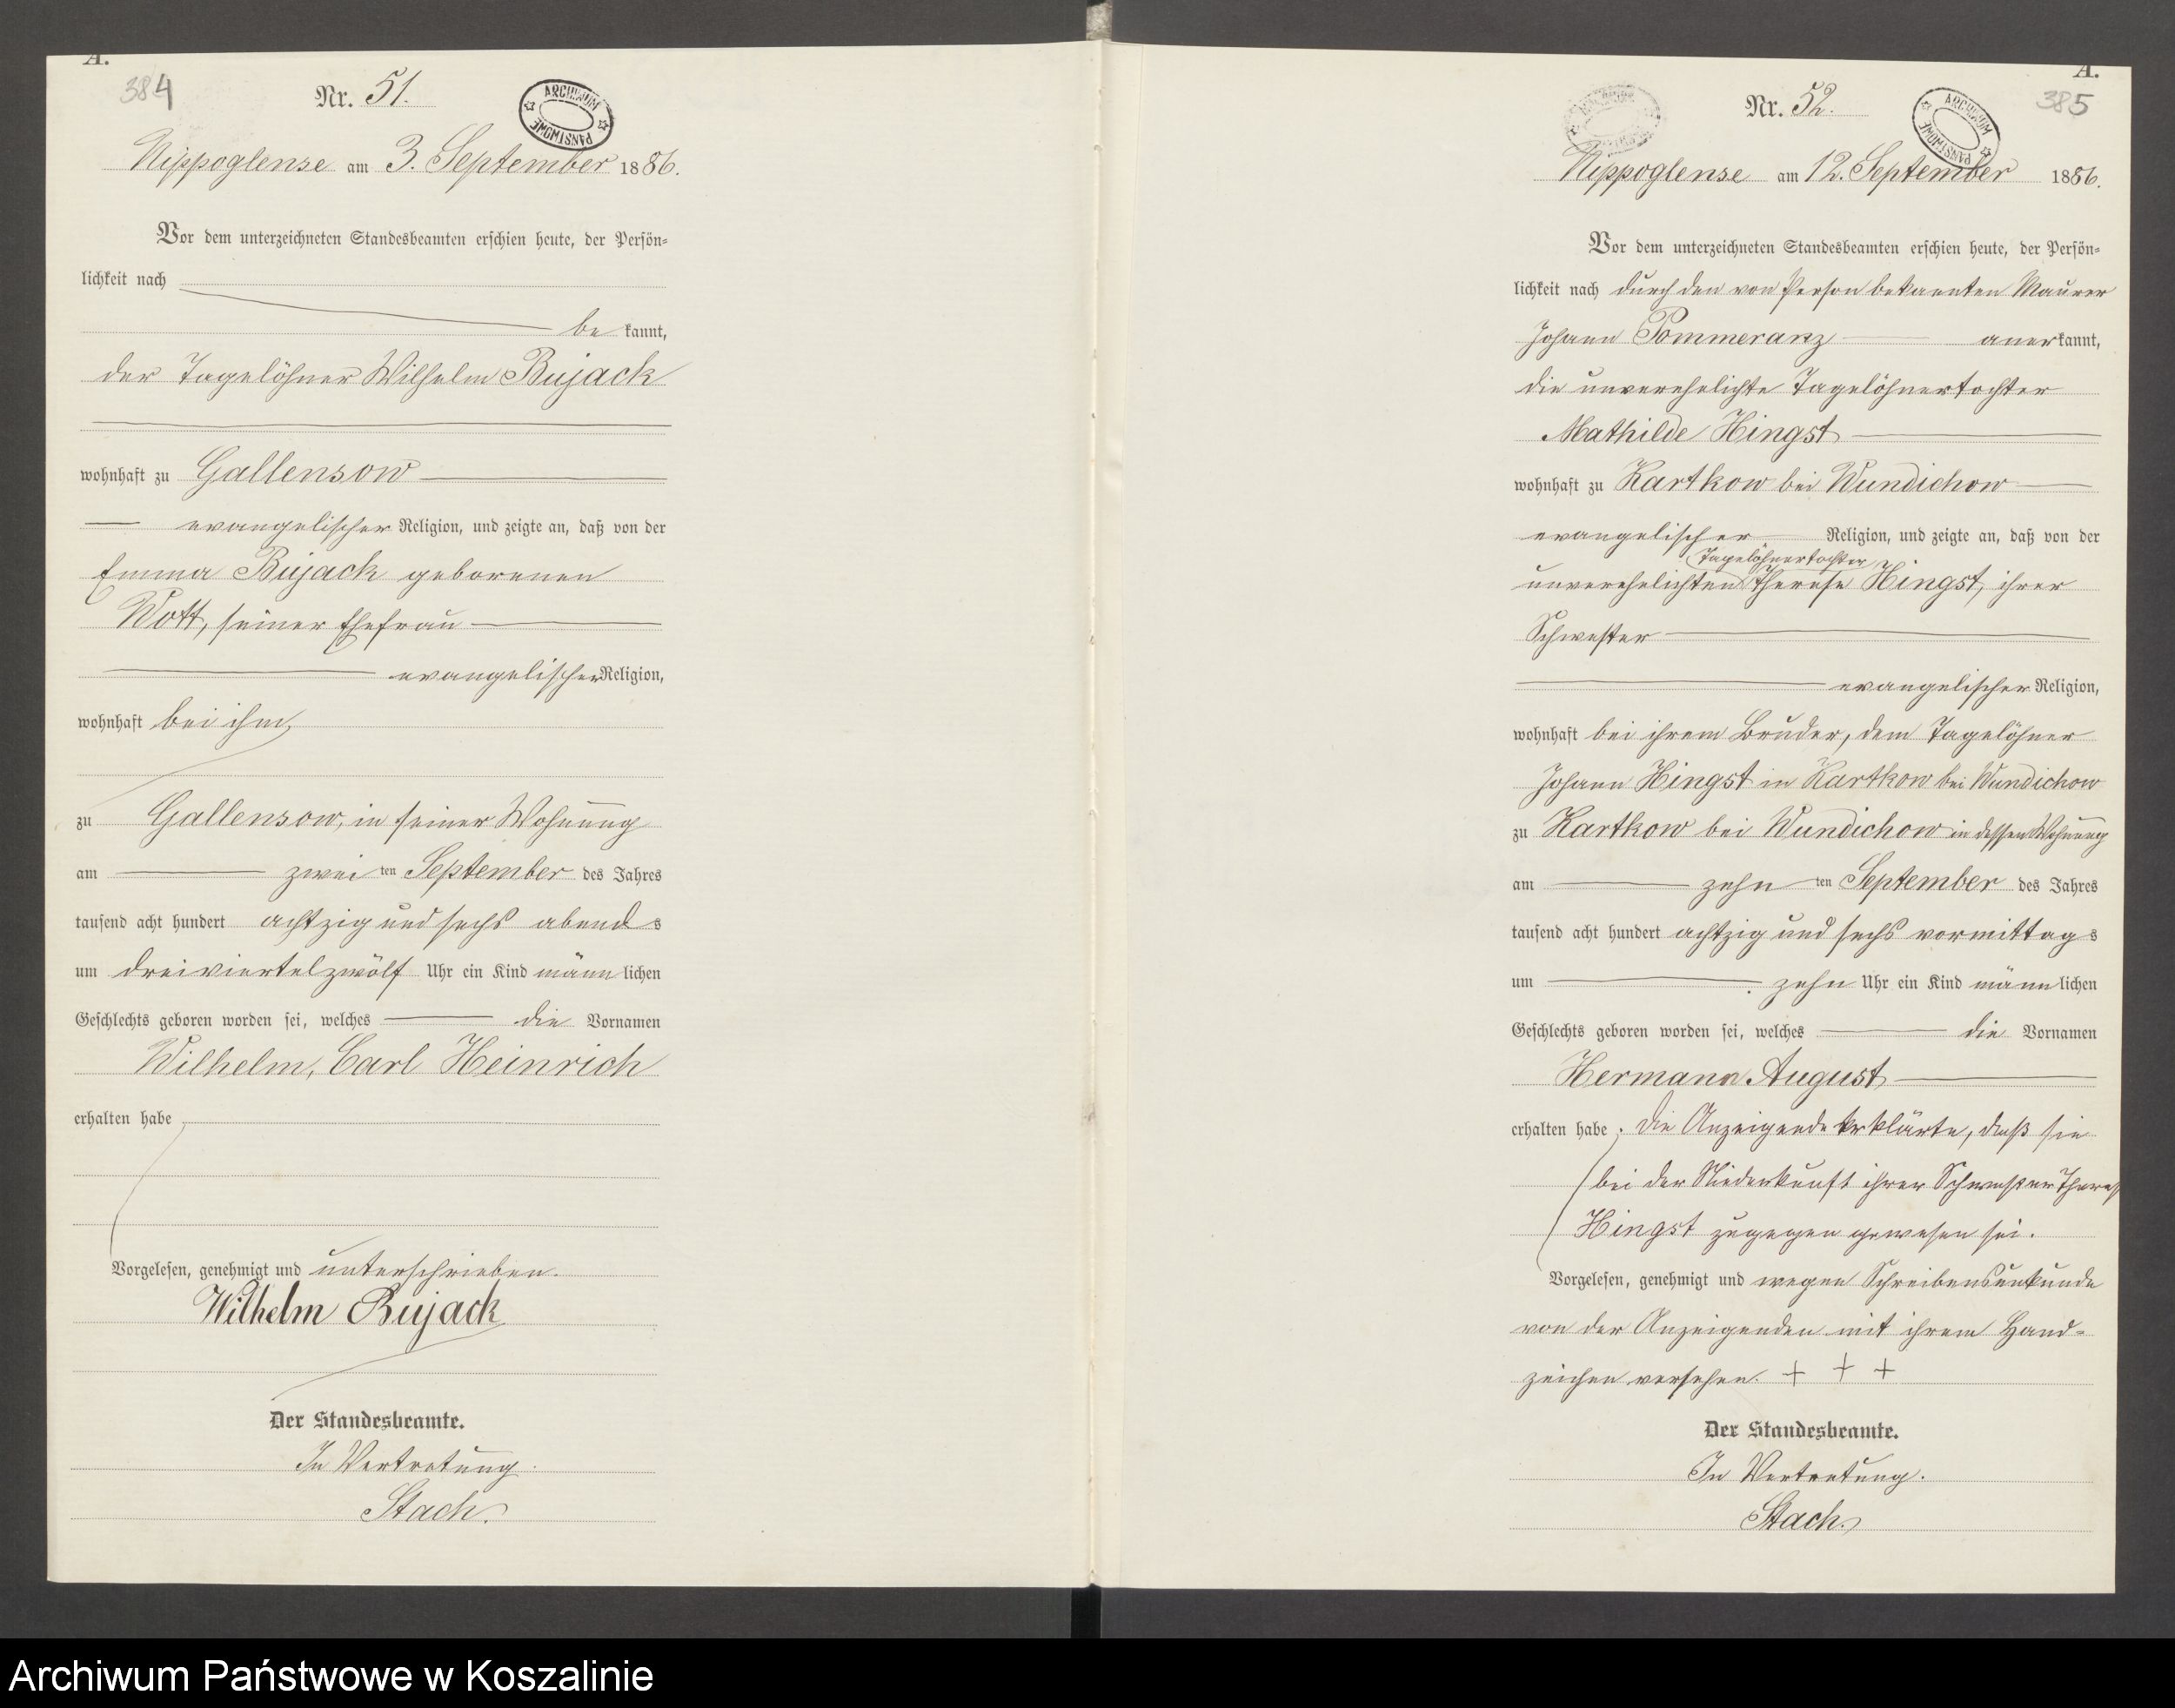 A.
384
Nr. 51.
ARCHIWUM PAŃSTWOWE
Nippoglense am 3. September 1886.
Vor dem unterzeichneten Standesbeamten erschien heute, der Persön-
lichkeit nach
be kannt,
der Tagelöhner Wilhelm Bujack
wohnhaft zu Gallensow
evangelischer Religion, und zeigte an, daß von der
Emma Bujack geborenen
Wott, seiner Ehefrau
evangelischer Religion,
wohnhaft bei ihm,
zu Gallensow, in seiner Wohnung
am zwei ten September des Jahres
tausend acht hundert achtzig und sechs abends
um dreiviertelzwölf Uhr ein Kind männlichen
Geschlechts geboren worden sei, welches die Vornamen
Wilhelm, Carl Heinrich
erhalten habe
Vorgelesen, genehmigt und unterschrieben.
Wilhelm Bujack
Der Standesbeamte.
In Vertretung.
Stach.
A.
385
Nr. 52.
ARCHIWUM PAŃSTWOWE
Nippoglense am 12. September 1886.
Vor dem unterzeichneten Standesbeamten erschien heute, der Persön-
lichkeit nach durch den von Person bekannten Maurer
Johann Pommeranz anerkannt,
die unverehelichte Tagelöhnertochter
Mathilde Hingst
wohnhaft zu Kartkow bei Wundichow
evangelischer Religion, und zeigte an, daß von der
Tagelöhnertochter
unverehelichten Therese Hingst, ihrer
Schwester
evangelischer Religion,
wohnhaft bei ihrem Bruder, dem Tagelöhner
Johann Hingst in Kartkow bei Wundichow
zu Kartkow bei Wundichow in dessen Wohnung
am zehn ten September des Jahres
tausend acht hundert achtzig und sechs vormittags
um zehn Uhr ein Kind männlichen
Geschlechts geboren worden sei, welches die Vornamen
Hermann August
erhalten habe. Die Anzeigende erklärte, daß sie
bei der Niederkunft ihrer Schwester Therese
Hingst zugegen gewesen sei.
Vorgelesen, genehmigt und wegen Schreibensunkunde
von der Anzeigenden mit ihrem Hand-
zeichen versehen. + + +
Der Standesbeamte.
In Vertretung.
Stach.
Archiwum Państwowe w Koszalinie